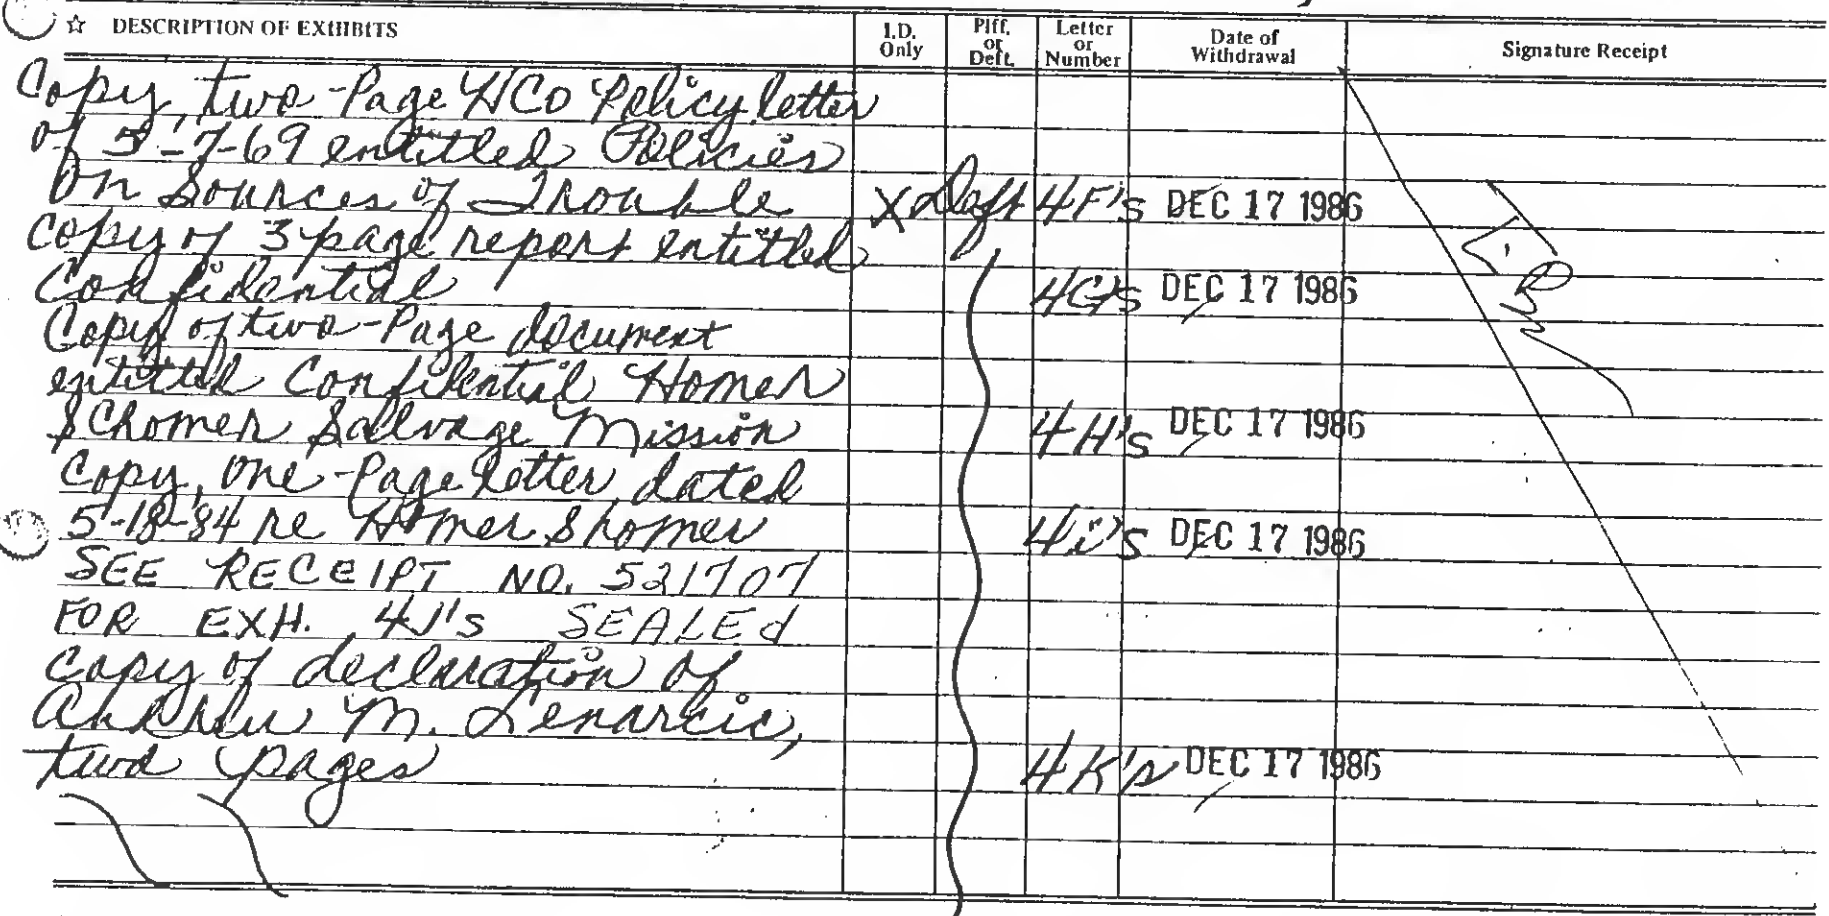 ☆ DESCRIPTION OF EXHIBITS I.D. Only Plff. or Deft. Letter or Number Date of Withdrawal Signature Receipt
Copy, two-Page HCO Policy letter
of 5-7-69 entitled Policies
On Sources of Trouble X Deft 4F's DEC 17 1986
Copy of 3 page report entitled
Confidential 4G's DEC 17 1986
Copy of two-Page document
entitled Confidential Homer
Schomer Sallvage Mission 4H's DEC 17 1986
Copy, one-Page letter dated
5-18-84 re Homer Shomer 4i's DEC 17 1986
SEE RECEIPT NO. 521707
FOR EXH. 4J's SEALEd
Copy of declaration of
Andrew M. Lenarcic,
two pages 4K's DEC 17 1986